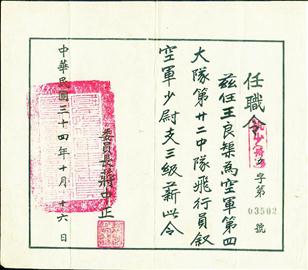 任職令
字第03502號
茲任王良榘為空軍第四
大隊第廿二中隊飛行員敘
空軍少尉支三級薪此令
委員長蔣中正
中華民國三十四年十月十六日